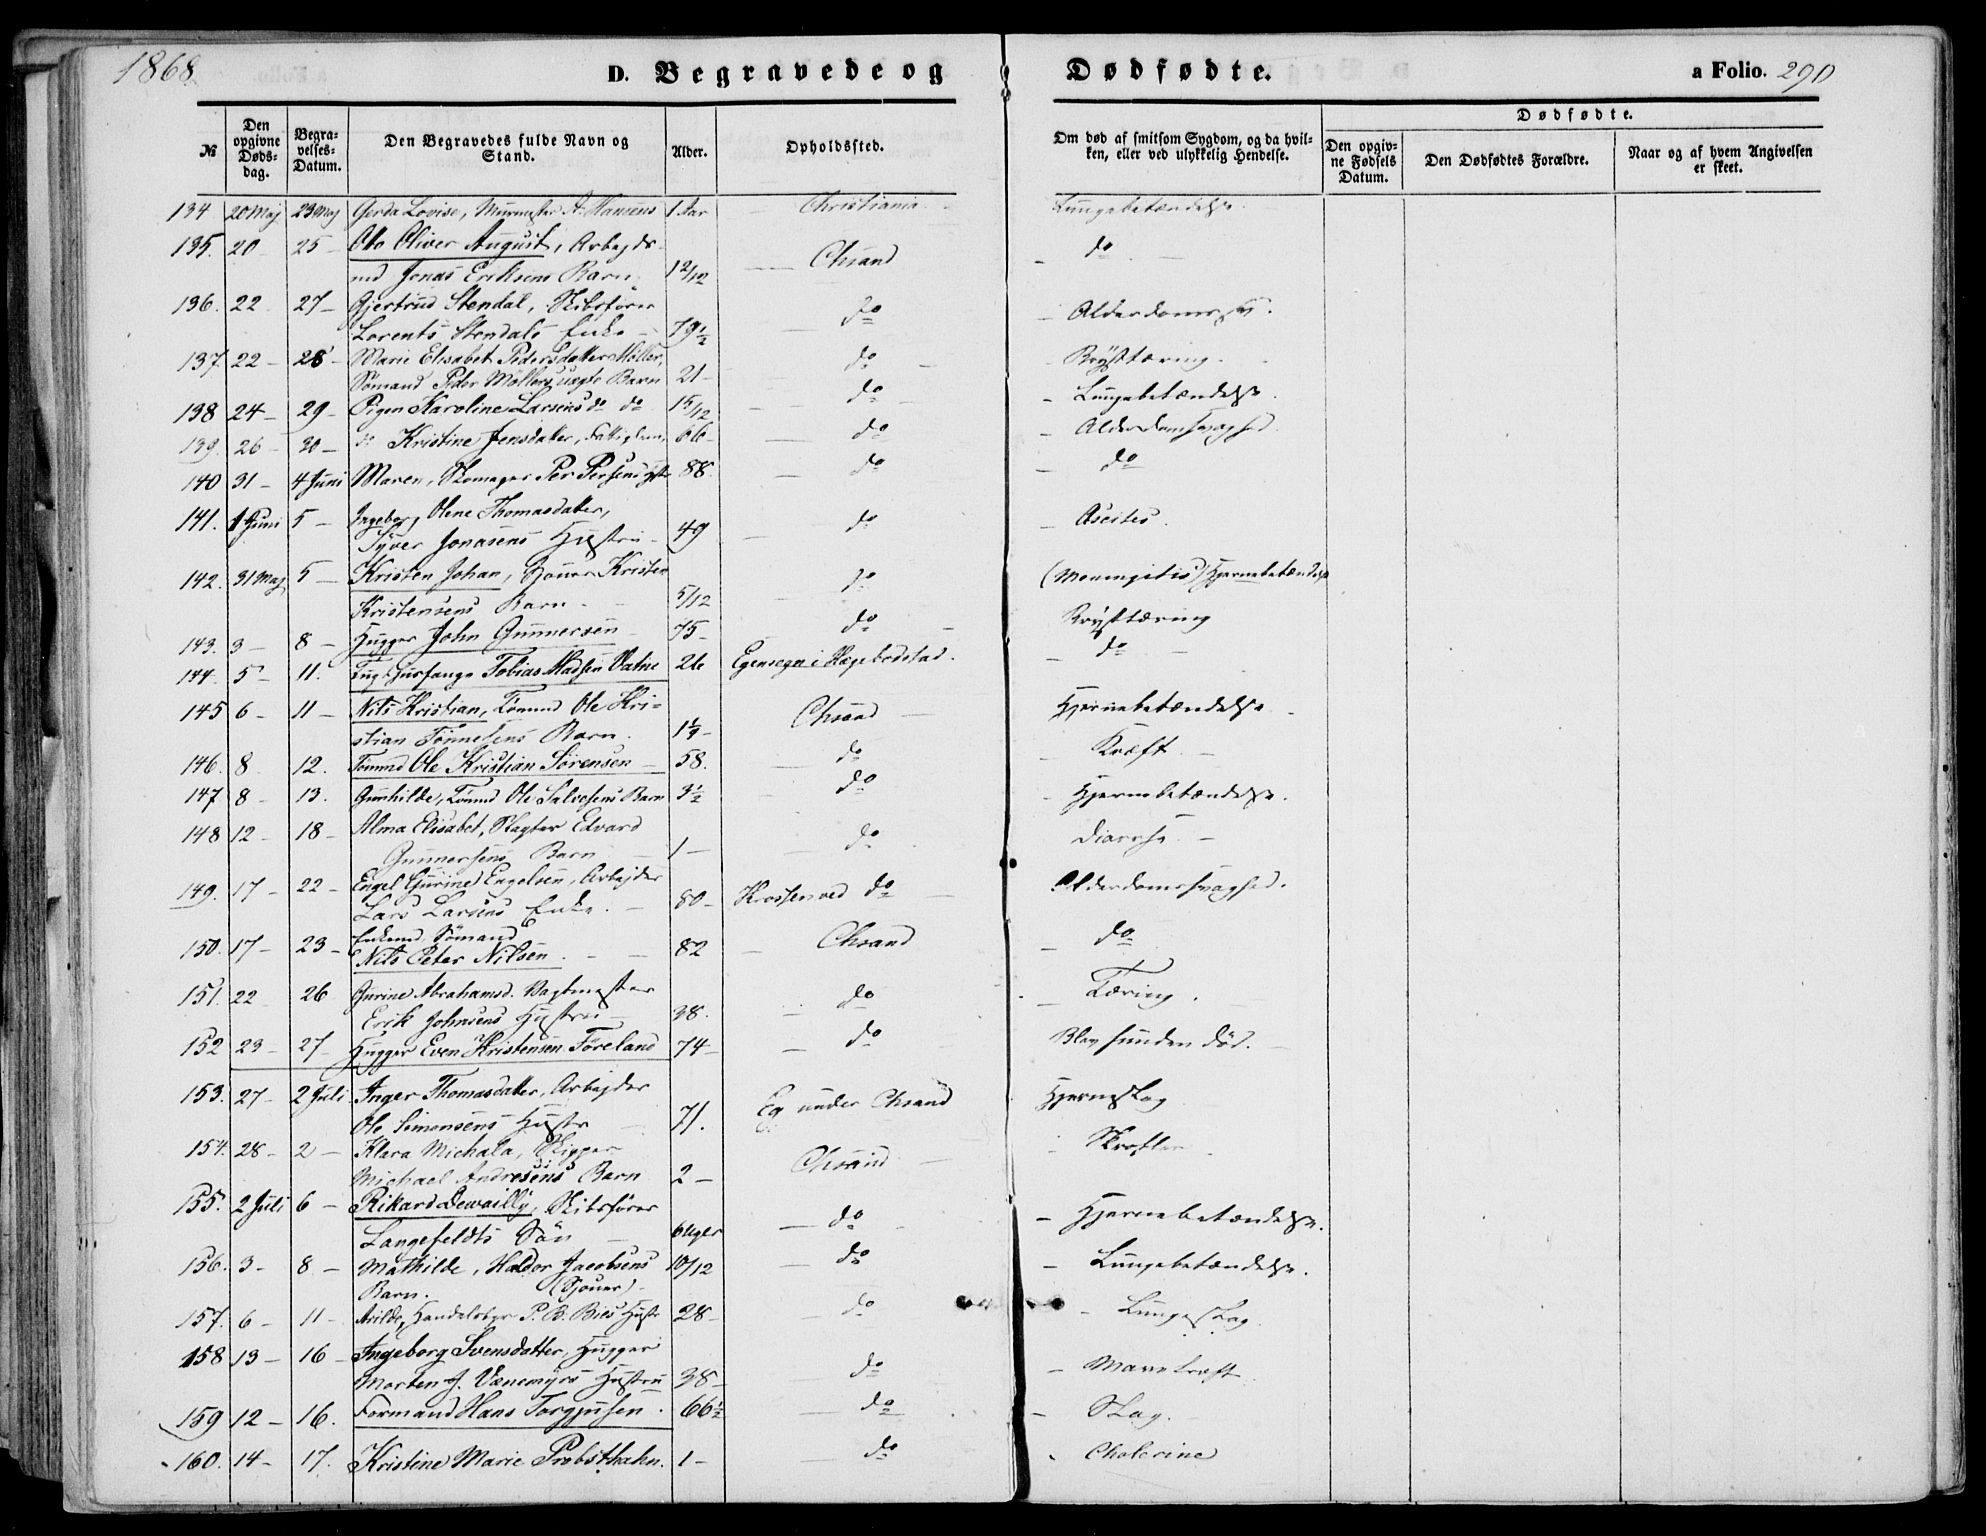 1868
D. Begravede og Dødfødte.
a Folio. 290
№
Den opgivne Døds-dag.
Begra-velses-Datum.
Den Begravedes fulde Navn og Stand.
Alder.
Opholdssted.
Om død af smitsom Sygdom, og da hvil-ken, eller ved ulykkelig Hendelse.
Dødfødte.
Den opgiv-ne Fødsels Datum.
Den Dødfødtes Forældre.
Naar og af hvem Angivelsen er skeet.
134 20 Maj 23 Maj Gerda Lovise, Murmester A. Hansens 1 Aar Christiania Lungebetændelse
135. 20 25 - Ole Oliver August, Arbejds-
md Jonas Eriksens Barn 1 2/12 Chsand do
136. 22 27 - Gjertrud Stendal, Skibsfører
Lorents Stendals Enke 79½ do Alderdomssv.
137. 22 - 28 - Marie Elisabet Pedersdatter Møller,
Sömand Peder Möllers uægte Barn 21 - do Brysttæring
138 24 - 29 - Pigen Karoline Larsens do do 15/12 do Lungebetændelse
139. 26 - 30 - do Kristine Jensdatter, Fattiglem, 66 - do Alderdomsvaghed
140 31 - 4 Juni Maren, Skomager Per Persens 88. do do
141. 1 Juni 5 - Ingeborg Olene Thomasdatter,
Syver Jonasens Hustru - 49 do Ascites.
142. 31 Maj 5 - Kristen Johan, Sjouer Kristen
Kristensens Barn - 5/12 do (Meningitis) Hjernebetændelse
143. 3 - 8 - Hugger John Gunnersen 75 - do Brysttæring
144. 5 - 11. Tugthusfange Tobias Madsen Vatne 26 Egensogn i Hægebostad. do
145 6 - 11 - Nils Kristian, Tömmd Ole Kri-
stian Tönnesens Barn. 1¼ - Chsand Hjernebetændelse
146. 8 12. Tömmd Ole Kristian Sörensen 58. do Kræft
147 8 - 13. Gunhilde, Tömmd Ole Salvesens Barn 3½ do Hjernebetændelse.
148 12 - 18 - Alma Elisabet, Slagter Edvard
Gunnersens Barn 1 - do Diarrhe
149. 17 - 22 - Engel Gurine Engelsen, Arbejder
Lars Larsens Enke. 80 - Krossen ved do Alderdomssvaghed.
150. 17 - 23 - Enkemd. Sömand
Nils Peter Nilsen 82 Chsand do
151. 22 26 Gurine Abrahamsd. Vagtmester
Erik Johnsens Hustru 38. do Tæring.
152 23 - 27 - Hugger Even Kristensen Föreland 74 - do Blev funden död.
153. 27 - 2 Juli Inger Thomasdatter, Arbejder
Ole Simensens Hustr 71. Eg under Chsand Hjerneslag
154. 28 - 2 - Klara Michala, Skipper
Michael Andresens Barn 2 - Chsand
155. 2 Juli 6 - Rikard Dewailly, Skibsfører
Langefeldts Sön 6 Uger do Hjernebetændelse.
156. 3 - 8 - Mathilde, Haldor Jacobsens
Barn. (Sjouer) 10/12 do Lungebetændelse.
157. 6 - 11 - Handelsbgr P. B. Bies Hustr 28 - do Lungeslag
158 13 - 16 - Ingeborg Svensdatter, Hugger
Morten J. Vænemyrs Hustru 38 - do Mavekræft
159 12 - 16. Formand Hans Torgjusen. 66½ do Slag.
160. 14 - 17. Kristine Marie Probsthahn. 1 - do Cholerine